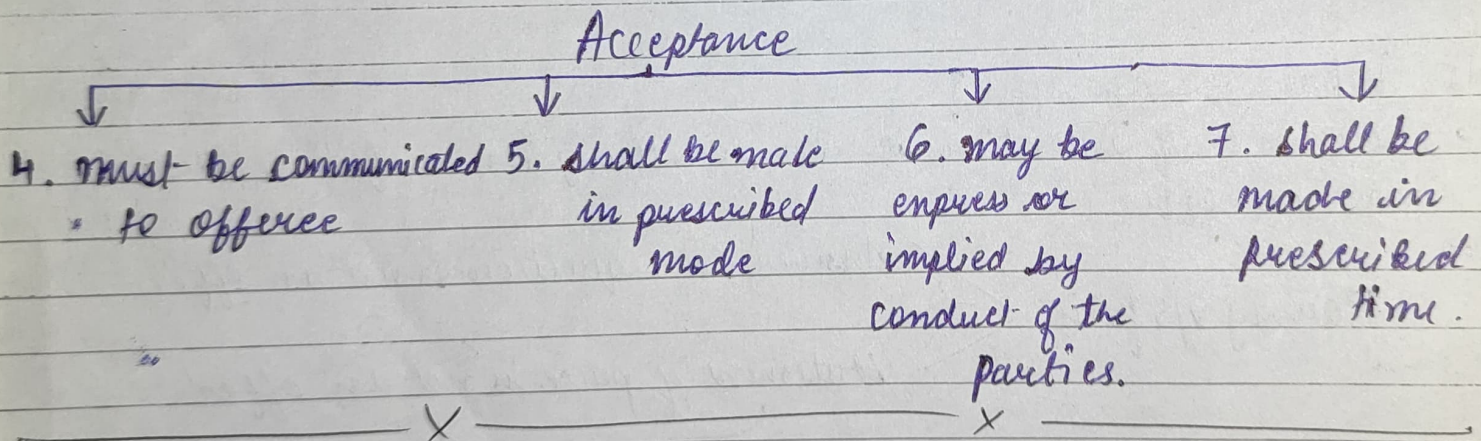 Acceptance
4. must be communicated
to offeree
5. shall be male
in prescribed
mode
6. may be
enpress or
implied by
conduct of the
parties.
7. shall be
made in
prescribed
time.
X X